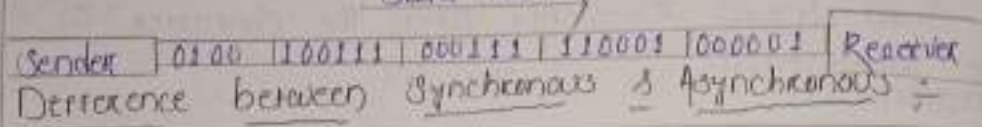 Sender | 0100 | 100111 | 000111 | 110001 | 000001 | Reaerver
Derrerence between Synchronous & Asynchronous :-